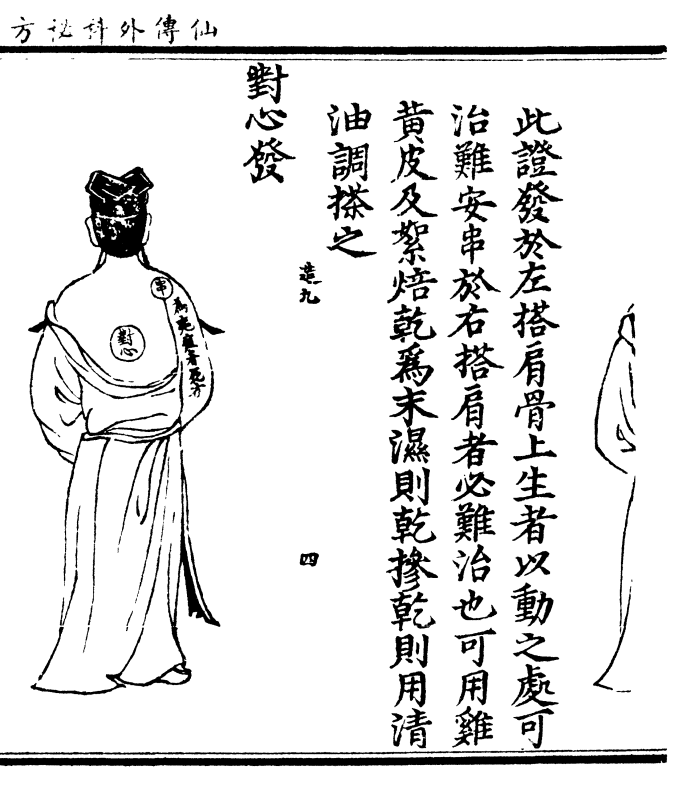 仙傳外科秘方
此證發於左搭肩骨上生者以動之處可
治難安串於右搭肩者必難治也可用雞
黃皮及絮焙乾爲末濕則乾摻乾則用清
油調搽之
造九
四
對心發
串
對心